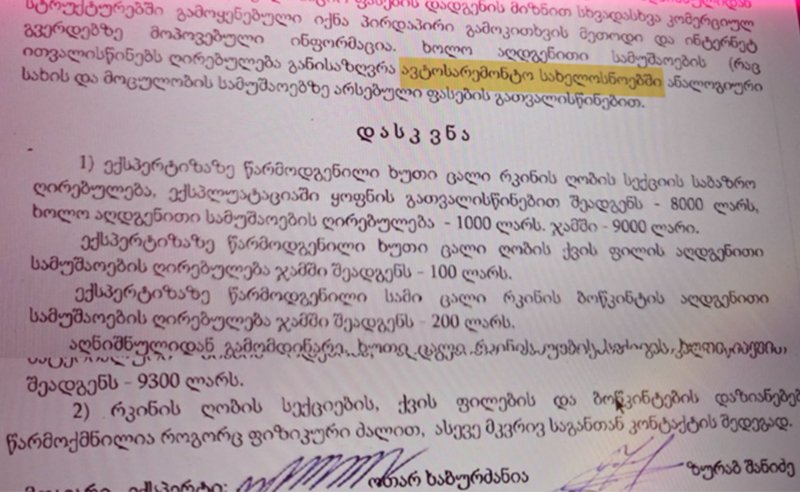 სტრუქტურებში გამოყენებული იქნა პირდაპირი გამოკითხვის მეთოდი და ინტერნეტ
გვერდებზე მოპოვებული ინფორმაცია. ხოლო აღდგენითი სამუშაოების (რაც
ითვალისწინებს ღირებულება განისაზღვრა ავტოსარემონტო სახელოსნოებში ანალოგიური
სახის და მოცულობის სამუშაოებზე არსებული ფასების გათვალისწინებით.
დასკვნა
1) ექსპერტიზაზე წარმოდგენილი ხუთი ცალი რკინის ღობის სექციის საბაზრო
ღირებულება, ექსპლუატაციაში ყოფნის გათვალისწინებით შეადგენს - 8000 ლარს,
ხოლო აღდგენითი სამუშაოების ღირებულება - 1000 ლარს. ჯამში - 9000 ლარი.
ექსპერტიზაზე წარმოდგენილი ხუთი ცალი ღობის ქვის ფილის აღდგენითი
სამუშაოების ღირებულება ჯამში შეადგენს - 100 ლარს.
ექსპერტიზაზე წარმოდგენილი სამი ცალი რკინის ბოწკინტის აღდგენითი
სამუშაოების ღირებულება ჯამში შეადგენს - 200 ლარს.
აღნიშნულიდან გამომდინარე, ხუთი ცალი რკინის
შეადგენს - 9300 ლარს.
2) რკინის ღობის სექციების, ქვის ფილების და ბოწკინტების დაზიანებებ
წარმოქმნილია როგორც ფიზიკური ძალით, ასევე მკვრივ საგანთან კონტაქტის შედეგად.
ოთარ ხაბურძანია ზურაბ შანიძე
ექსპერტი: